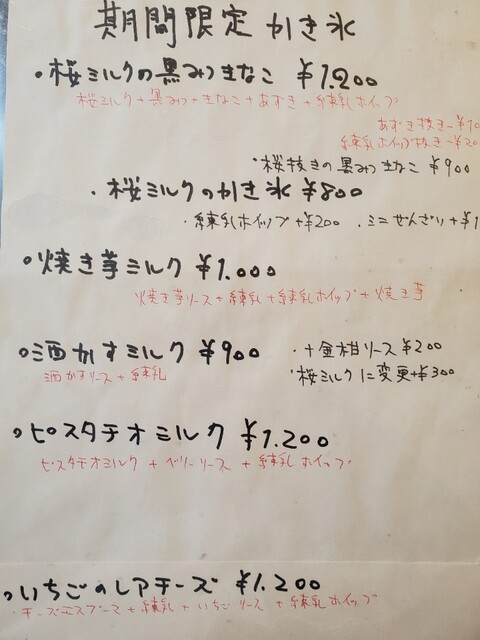 期間限定 かき氷
・桜ミルクの黒みつきなこ ¥1.200
桜ミルク+黒みつ+きなこ+あずき+練乳ホイップ
あずき抜き-¥10
練乳ホイップ抜き-¥20
・桜抜きの黒みつきなこ ¥900
・桜ミルクのかき氷 ¥800
・練乳ホイップ+¥200 ・ミニぜんざい+¥1
・焼き芋ミルク ¥1.000
焼き芋ソース+練乳+練乳ホイップ+焼き芋
・酒かすミルク ¥900 ・+金柑ソース¥200
酒かすソース+練乳 ・桜ミルクに変更+¥300
・ピスタチオミルク ¥1.200
ピスタチオミルク+ベリーソース+練乳ホイップ
・いちごのレアチーズ ¥1.200
・チーズエスプーマ+練乳+いちごソース+練乳ホイップ